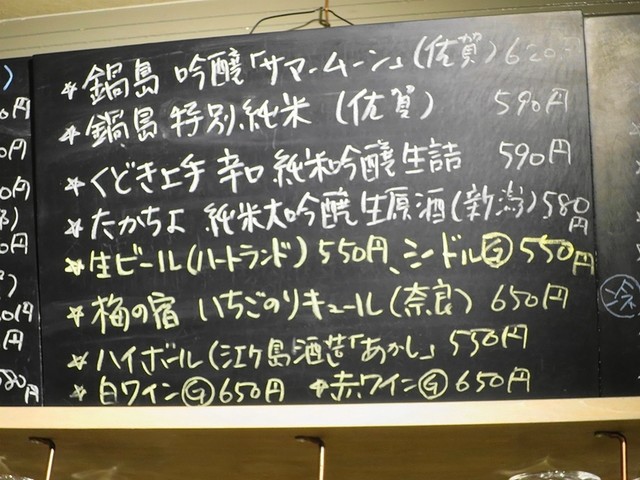 ☆鍋島 吟醸「サマームーン」(佐賀) 620円
☆鍋島 特別純米 (佐賀) 590円
☆くどき上手 辛口 純米吟醸生詰 590円
☆たかちよ 純米大吟醸生原酒(新潟)580円
☆生ビール(ハートランド) 550円、シードルⒼ 550円
☆梅の宿 いちごのリキュール(奈良) 650円
☆ハイボール(江ヶ島酒造「あかし」 550円
☆白ワインⒼ650円 ☆赤ワインⒼ650円